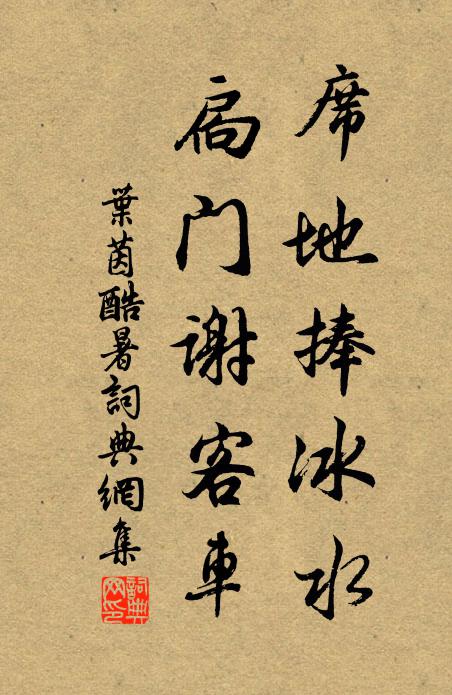 席地捧冰水
扃门謝客車
葉茵酷暑詞典網集
詞典网印